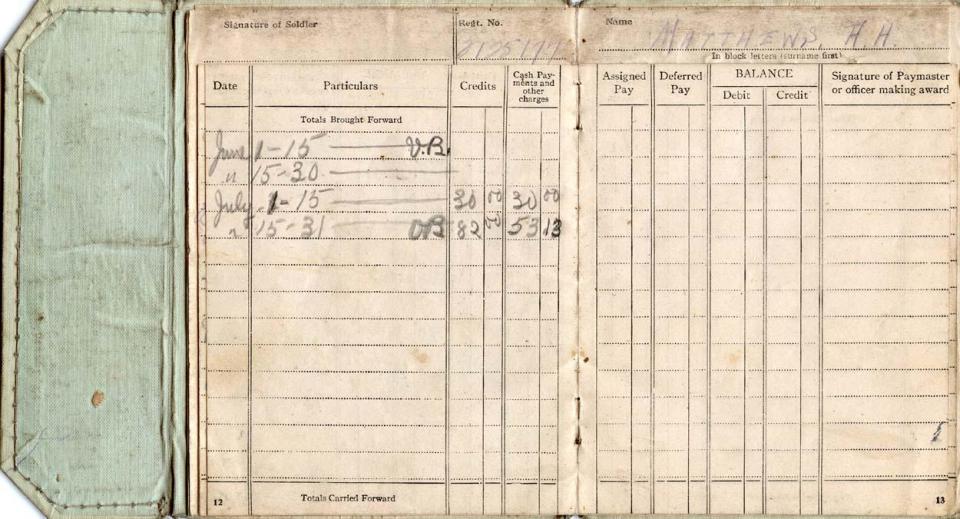 Signature of Soldier
Regt. No.
Name
MATTHEWS, H. H.
In block letters (surname first)
Date Particulars Credits Cash Pay-
ments and
other
charges
Assigned
Pay
Deferred
Pay
BALANCE
Debit Credit
Signature of Paymaster
or officer making award
Totals Brought Forward
June 1-15 V.B.
" 15-30
July 1-15 30 00 30 00
" 15-31 VB 82 00 53 13
Totals Carried Forward
12
13